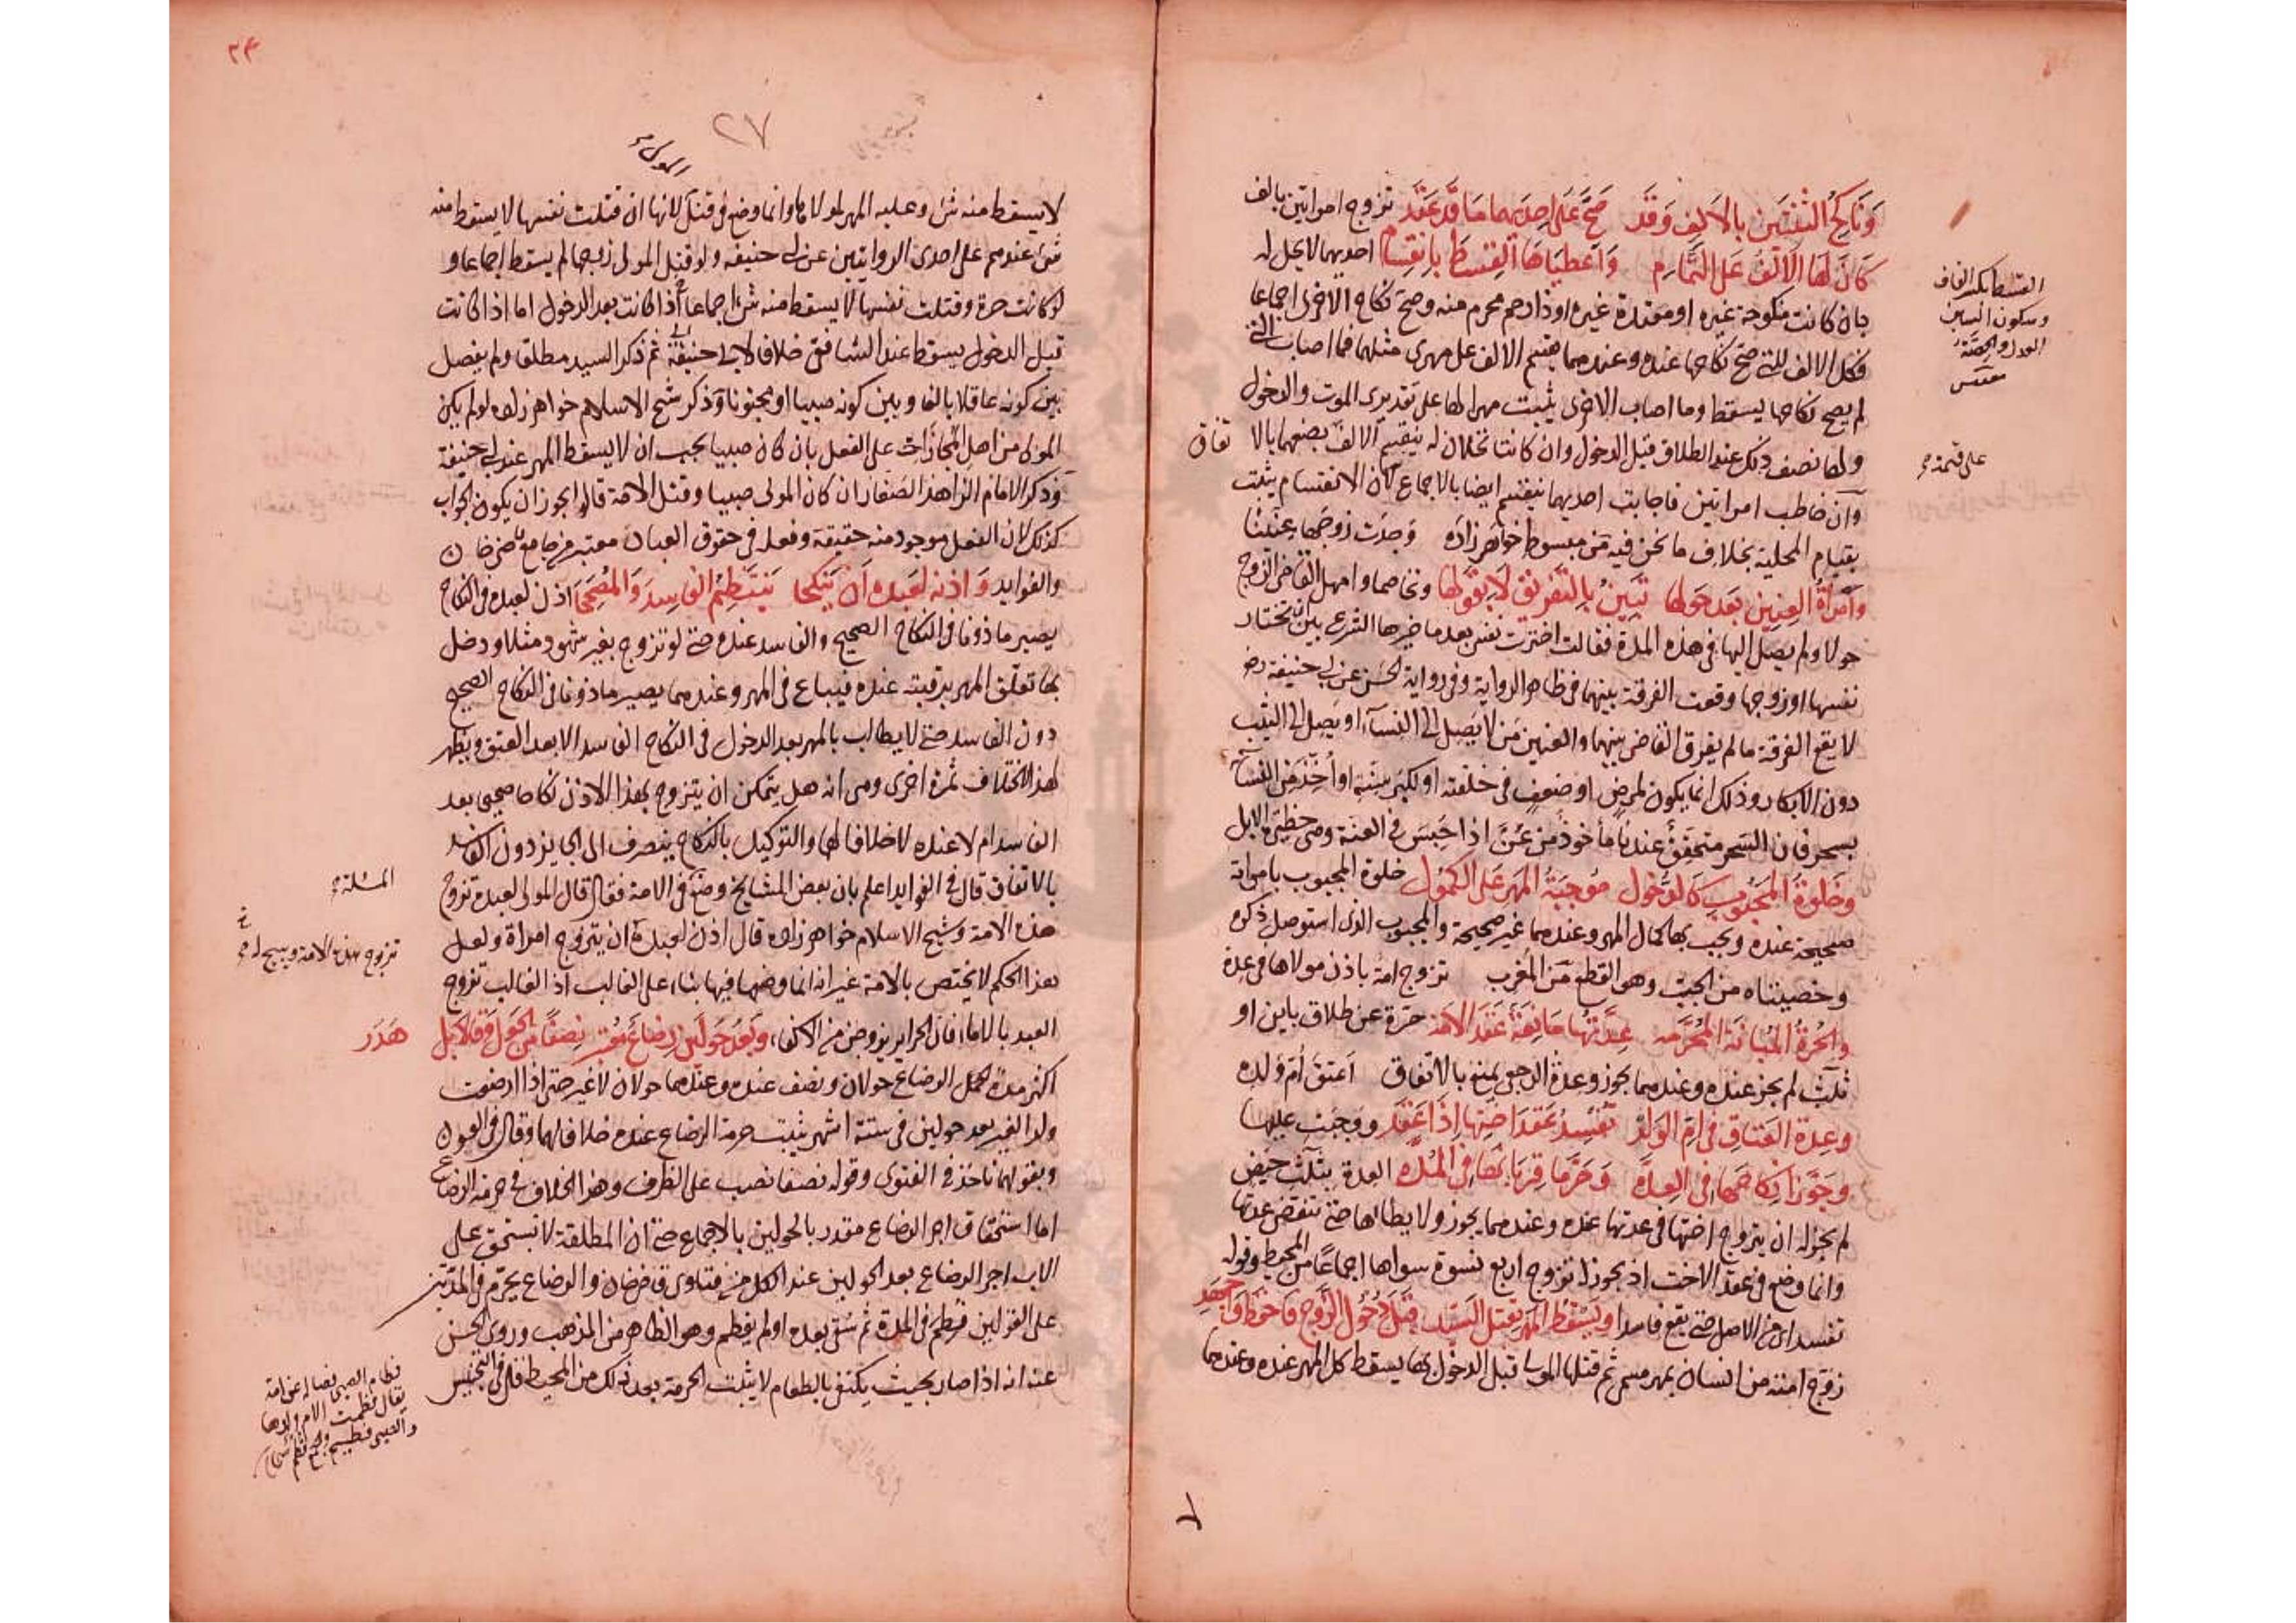 وَنَاكِحُ الثِّنْتَيْنِ بِالأَلْفِ وَقَدْ صَحَّ عَلَى إِحْدَيْهِمَا مَا قَدْ عَقَدْ تزوج امراتين بالف
كَانَ لَهَا الأَلْفُ عَلَى التَّمَامِ وَأَعْطَيَاهَا القِسْطَ بِانْقِسَامِ احديهما لا يحل له
بان كانت منكوحة غيره او معتدة غيره او ذا رحم محرم منه وصح نكاح الاخرى اجماعا
فكل الالف للتي صح نكاحها عنده وعندهما يقسم الالف على مهرى مثلهما فما اصاب التى
لم يصح نكاحها يسقط وما اصاب الاخرى يثبت مهرا لها على تقديرى الموت والدخول
ولها نصف ذلك عند الطلاق قبل الدخول وان كانتا تحلان له ينقسم الالف بضعهما بالاتفاق
وان خاطب امراتين فاجابت احديهما ينقسم ايضا بالاجماع لان الانقسام يثبت
بقيام المحلية بخلاف ما نحن فيه من مبسوط خواهر زاده وجدت زوجها عنينا
وَامْرَأَةُ العِنِّينِ بَعْدَ حَوْلِهَا تَبِينُ بِالتَّفْرِيقِ لَا بِقَوْلِهَا وتخاصما وامهل القاضى الزوج
حولا ولم يصل اليها فى هذه المدة فقالت اخترت نفسى بعد ما خيرها الشرع بين ان تختار
نفسها او زوجها وقعت الفرقة بينهما فى ظاهر الرواية وفى رواية الحسن عن ابى حنيفة رضـ
لا يقع الفرقة ما لم يفرق القاضى بينهما والعنين من لا يصل الى النساء او يصل الى الثيب
دون الابكار وذلك انما يكون لمرض او ضعف فى خلقته او لكبر سنه او أُخِّذَ من النساء
بسحر فان السحر متحقق عندنا مأخوذ من عُنَّ اذا حبس فى العنة وهى حظيرة الابل
وَخَلْوَةُ المَجْبُوبِ كَالدُّخُولِ مُوجِبَةُ المَهْرِ عَلَى الكُمُولِ خلوة المجبوب بامراته
صحيحة عنده ويجب بها كمال المهر وعندهما غير صحيحة والمجبوب الذى استوصل ذكره
وخصيتاه من الجب وهو القطع من المغرب تزوج امة باذن مولاها فى عدة
وَالحُرَّةُ المُبَانَةُ المُحَرَّمَه عِدَّتُهَا مَانِعَةٌ عَقْدَ الأَمَه حرة عن طلاق باين او
ثلث لم يجز عنده وعندهما يجوز وعدة الرجعى يمنع بالاتفاق اعتق ام ولده
وَعِدَّةُ العَتَاقِ فِى أُمِّ الوَلَدْ تُفْسِدُ عَقْدَ أُخْتِهَا إِذَا عَقَدْ ووجبت عليها
وَجَوَّزَا نِكَاحَهَا فِى العِدَّه وَحَرَّمَا قِرْبَانَهَا فِى المُدَّه العدة بثلث حيض
لم يجز له ان يتزوج اختها فى عدتها عنده وعندهما يجوز ولا يطاها حتى تنقضى عدتها
وانما وضع فى عقد الاخت اذ يجوز له تزوج اربع نسوة سواها اجماعا من المحيط وقوله
تفسد اى فى الاصل حتى يقع فاسدا وَيَسْقُطُ المَهْرُ بِقَتْلِ السَّيِّدِ قَبْلَ دُخُولِ الزَّوْجِ فَاحْفَظْ وَاجْهَدِ
زوج امته من انسان بمهر مسمى ثم قتلها المولى قبل الدخول بها يسقط كل المهر عنده وعندهما
القسط بكسر القاف
وسكون السين
العدل والحصة
على قيمة
٢٤
٢٧
المولى
لا يسقط منه شى وعليه المهر لمولاها وانما وضع فى قتله لانها ان قتلت نفسها لا يسقط منه
شى عندهم على احدى الروايتين عن ابى حنيفه ولو قتل المولى زوجها لم يسقط اجماعا و
لو كانت حرة وقتلت نفسها لا يسقط منه شى اجماعا اذا كانت بعد الدخول اما اذا كانت
قبل الدخول يسقط عند الشافعى خلافا لابى حنيفة ثم ذكر السيد مطلق ولم يفصل
بين كونه عاقلا بالغا وبين كونه صبيا او مجنونا وذكر شيخ الاسلام خواهر زاده لو لم يكن
المولى من اهل المجازات على الفعل بان كان صبيا يجب ان لا يسقط المهر عند ابى حنيفة
وذكر الامام الزاهد الصفار ان كان المولى صبيا وقتل الامة قالوا يجوز ان يكون الجواب
كذلك لان الفعل موجود منه حقيقة وفعله فى حقوق العباد معتبر من جامع قاضى خان
والفوايد وَإِذْنُهُ لِعَبْدِهِ أَنْ يَنْكِحَا يَنْتَظِمُ الفَاسِدَ وَالمُصَحَّحَا اذن لعبده فى النكاح
يصير ماذونا فى النكاح الصحيح والفاسد عنده حتى لو تزوج بغير شهود مثلا ودخل
بها تعلق المهر برقبته عنده فيباع فى المهر وعندهما يصير ماذونا فى النكاح الصحيح
دون الفاسد حتى لا يطالب بالمهر بعد الدخول فى النكاح الفاسد الا بعد العتق ويظهر
لهذا الاختلاف ثمرة اخرى وهى انه هل يتمكن ان يتزوج بهذا الاذن نكاحا صحيحا بعد
الفاسد ام لا عنده لا خلافا لهما والتوكيل بالنكاح ينصرف الى الجايز دون الفاسد
بالاتفاق قال فى الفوايد اعلم بان بعض المشايخ وضع فى الامة فقال قال المولى لعبده تزوج
هذه الامة وشيخ الاسلام خواهر زاده قال اذن لعبده ان يتزوج امراة ولعل
هذا الحكم لا يختص بالامة غير انه انما وضعها فيها بناء على الغالب اذ الغالب تزوج
العبد بالاماء فان الحراير يزوجن من الاكفاء وَبَعْدَ حَوْلَيْنِ رَضَاعٌ مُعْتَبَر نِصْفًا مِنَ الحَوْلِ وَقَالَا بَلْ هَدَر
اكثر مدة لحمل الرضاع حولان ونصف عنده وعندهما حولان لا غير حتى اذا ارضعت
ولد الغير بعد حولين فى ستة اشهر يثبت حرمة الرضاع عنده خلافا لهما وقال فى العيون
وبقولهما ناخذ فى الفتوى وقوله نصفا نصب على الظرف وهذا الخلاف فى حرمة الرضاع
اما استحقاق اجر الرضاع مقدر بالحولين بالاجماع حتى ان المطلقة لا تستحق على
الاب اجر الرضاع بعد الحولين عند الكل من فتاوى قاضى خان والرضاع يحرم فى المدتين
على القولين فطم فى المدة ثم سقى بعده او لم يفطم وهو الظاهر من المذهب وروى الحسن
عنه انه اذا صار بحيث يكتفى بالطعام لا يثبت الحرمة بعد ذلك من المحيط قال فى التجنيس
المسئلة
تزوج هذه الامة
فطام الصبى فصاله عن امه
يقال فطمت الام ولدها
والصبى فطيم